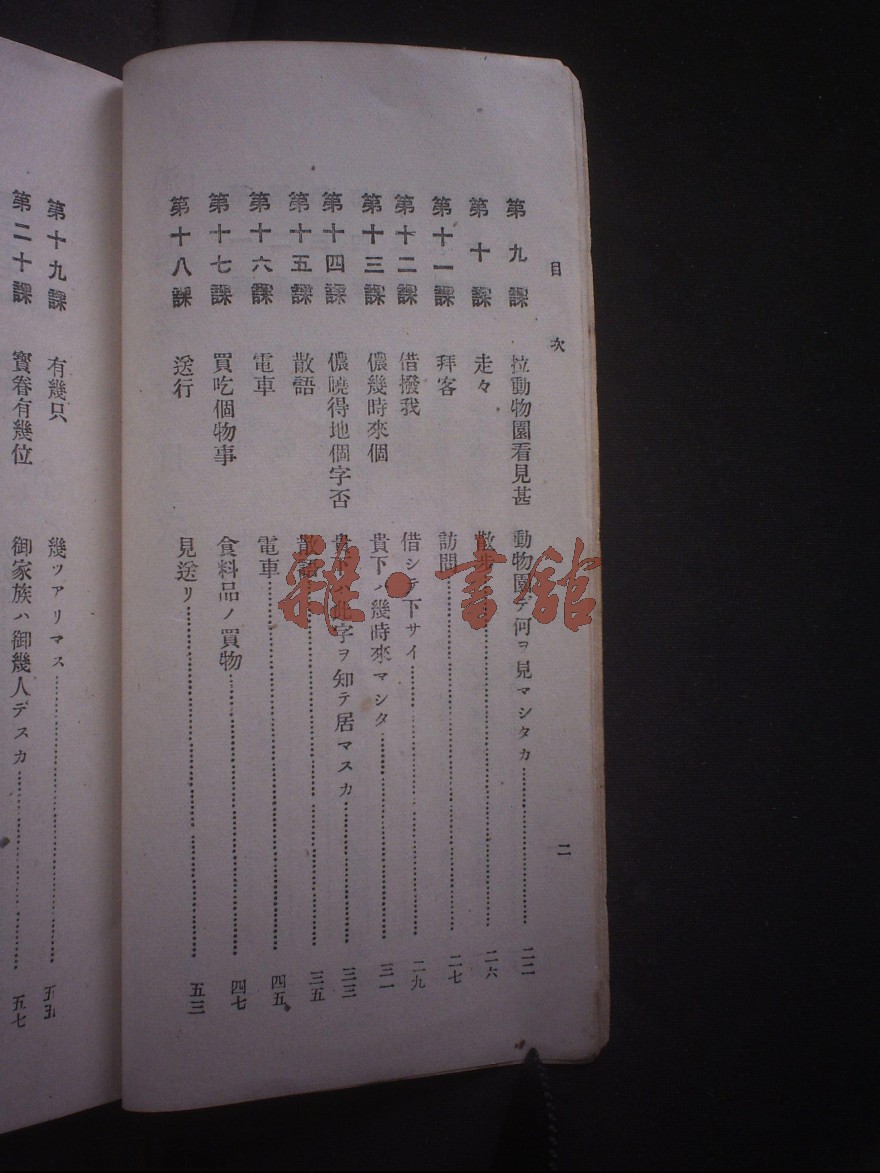 目次 二
第九課 拉動物園看見甚 動物園デ何ヲ見マシタカ 二二
第十課 走々 散步 二六
第十一課 拜客 訪問 二七
第十二課 借撥我 借シテ下サイ 二九
第十三課 儂幾時來個 貴下ノ幾時來マシタ 三一
第十四課 儂曉得地個字否 貴下ハ此字ヲ知テ居マスカ 三三
第十五課 散語 散語 三五
第十六課 電車 電車 四五
第十七課 買吃個物事 食料品ノ買物 四七
第十八課 送行 見送リ 五三
第十九課 有幾只 幾ツアリマス 五五
第二十課 寶眷有幾位 御家族ハ御幾人デスカ 五七
雜·書館